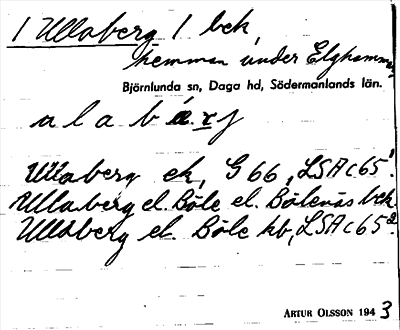 1 Ullaberg 1 bek,
hemman under Elghammar
Björnlunda sn, Daga hd, Södermanlands län.
u l a b æ r j
Ullaberg ek, G 66, LSA c 65¹.
Ullaberg el. Böle el. Bölenäs bek
Ullaberg el. Böle kb, LSA c 65²
ARTUR OLSSON 1943